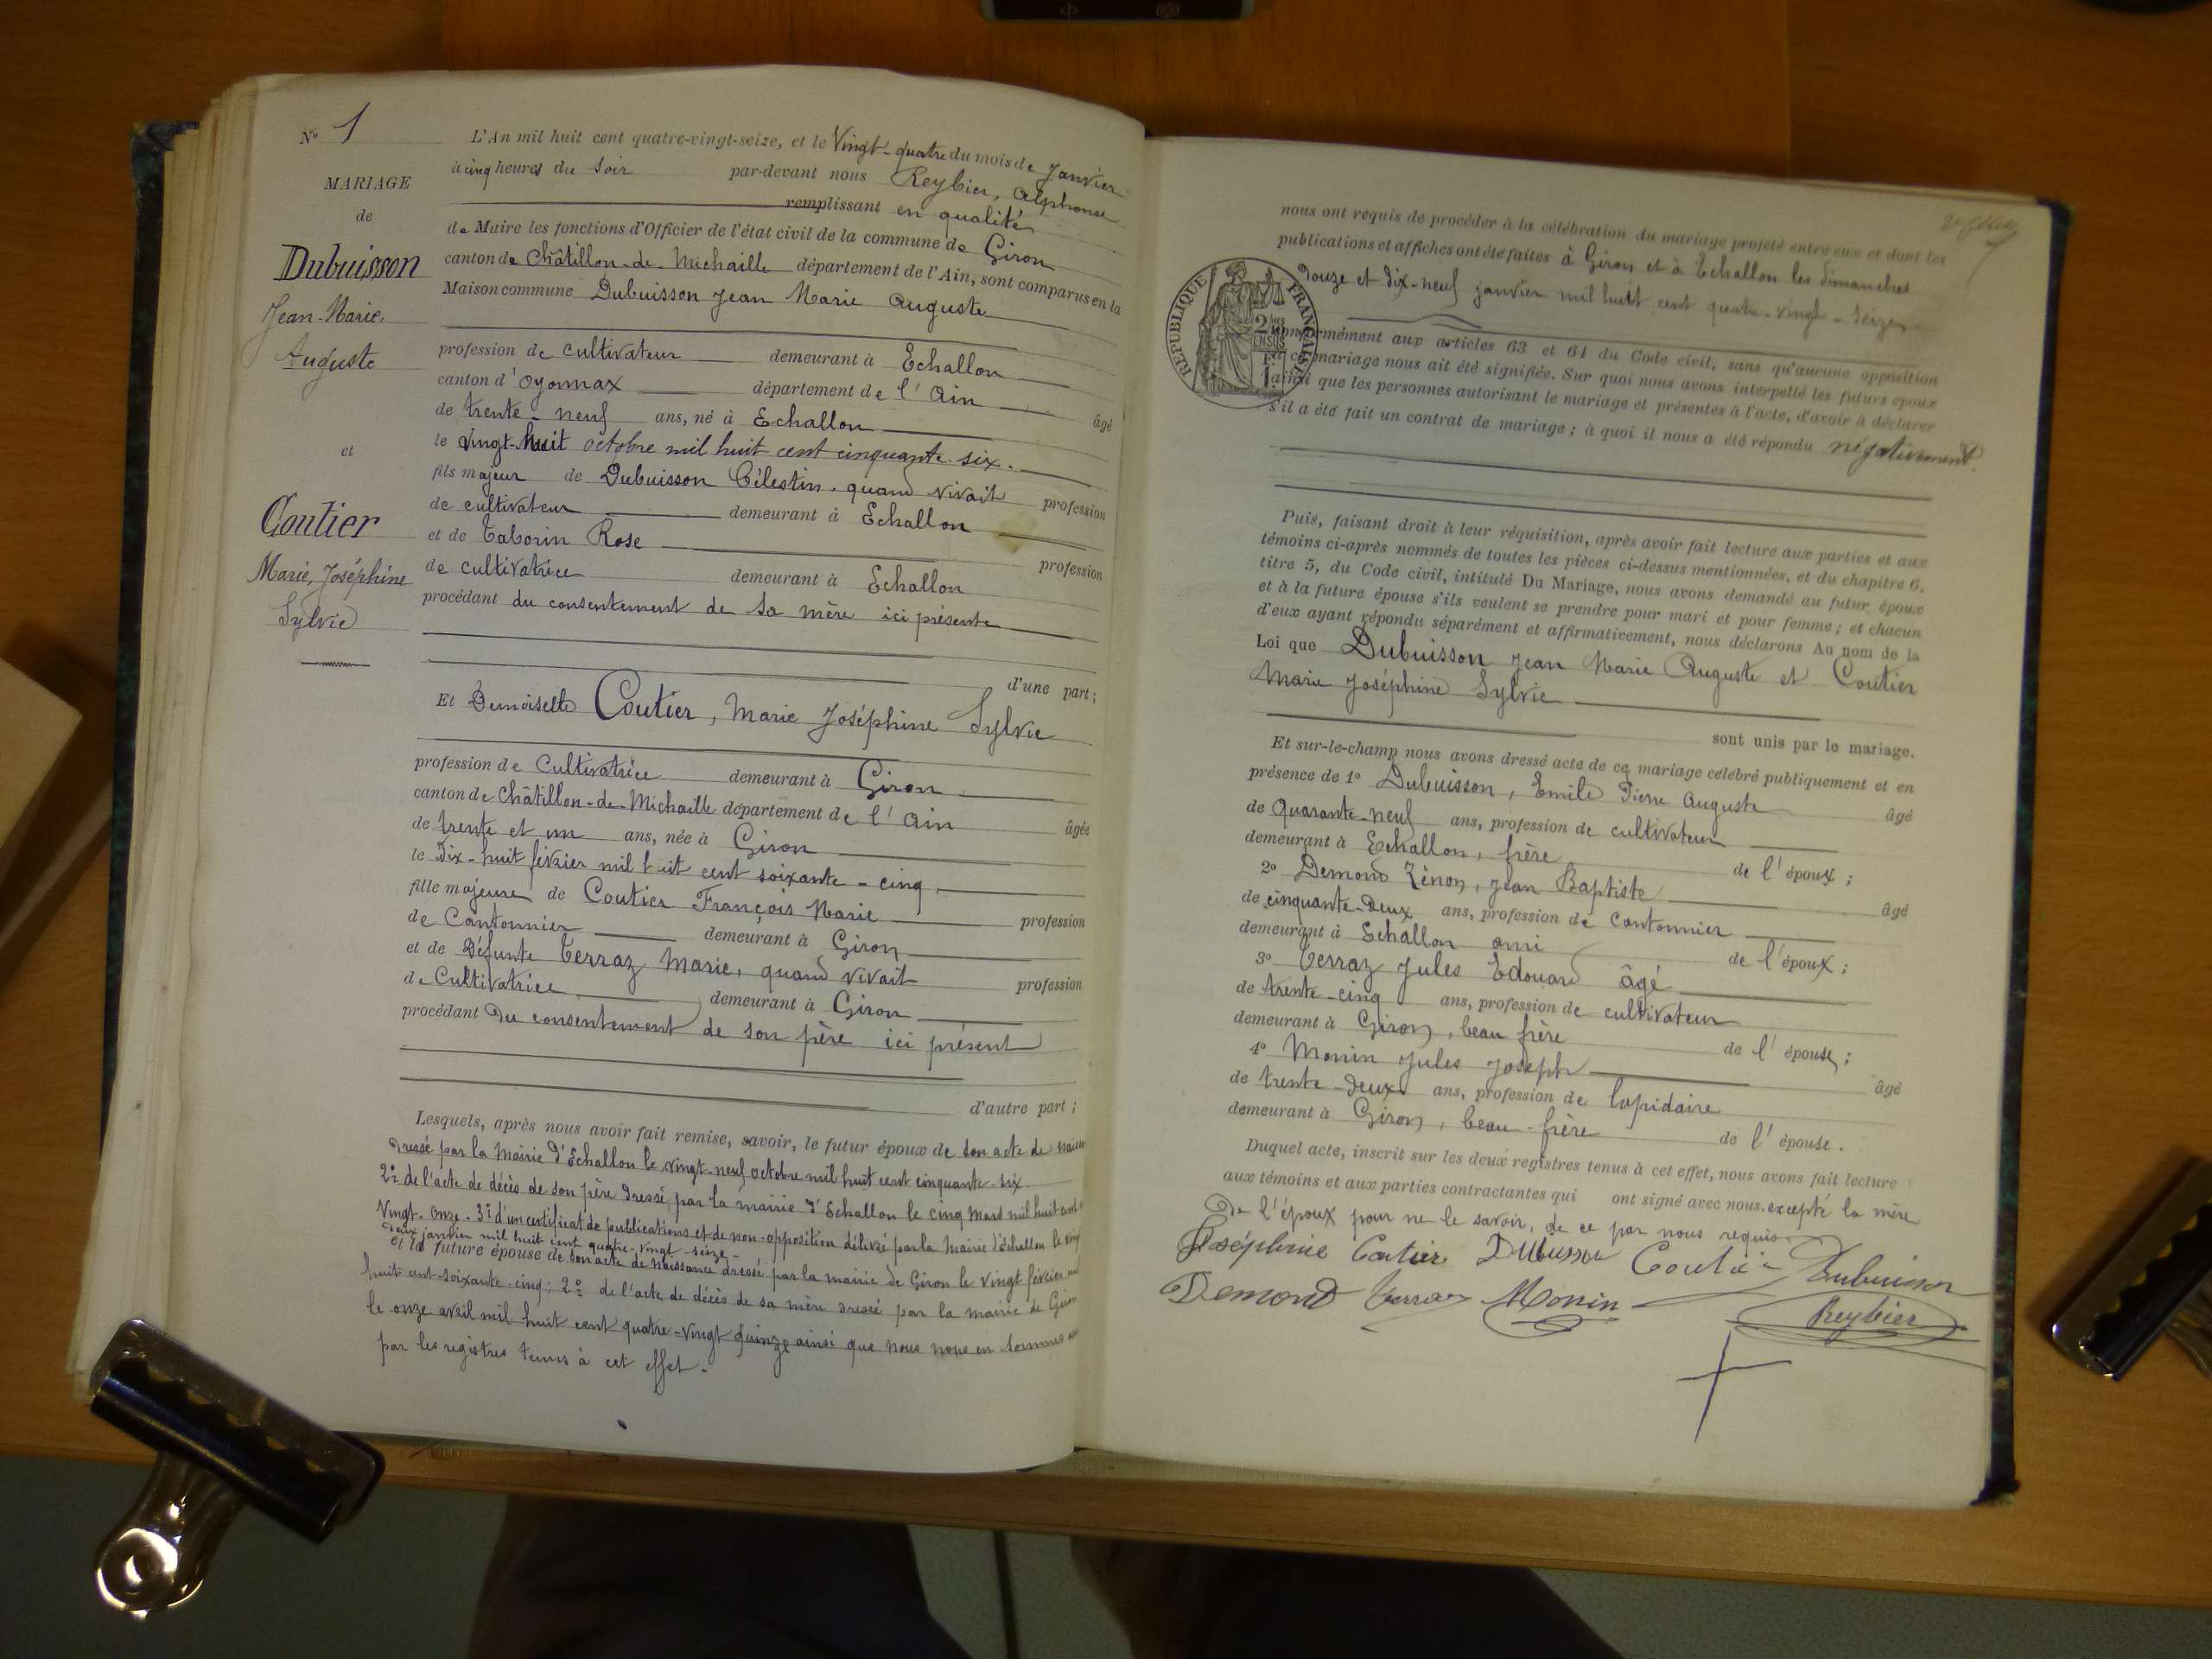 N° 1
MARIAGE
de
Dubuisson
Jean-Marie,
Auguste
et
Coutier
Marie, Joséphine
Sylvie
L'An mil huit cent quatre-vingt-seize, et le Vingt-quatre du mois de Janvier
à cinq heures du soir par-devant nous Reybier, Alphonse
remplissant en qualité
de Maire les fonctions d'Officier de l'état civil de la commune de Giron
canton de Châtillon-de-Michaille département de l'Ain, sont comparus en la
Maison commune Dubuisson Jean Marie Auguste
profession de cultivateur demeurant à Echallon
canton d'Oyonnax département de l'Ain âgé
de trente-neuf ans, né à Echallon
le vingt-huit octobre mil huit cent cinquante-six.
fils majeur de Dubuisson Célestin, quand vivait profession
de cultivateur demeurant à Echallon
et de Taborin Rose profession
de cultivatrice demeurant à Echallon
procédant du consentement de sa mère ici présente
d'une part;
Et Demoiselle Coutier, Marie Joséphine Sylvie
profession de Cultivatrice demeurant à Giron
canton de Châtillon-de-Michaille département de l'Ain âgée
de trente et un ans, née à Giron
le Dix-huit février mil huit cent soixante-cinq,
fille majeure de Coutier François Marie profession
de Cantonnier demeurant à Giron
et de Défunte Terraz Marie, quand vivait profession
de Cultivatrice demeurant à Giron
procédant du consentement de son père ici présent
d'autre part;
Lesquels, après nous avoir fait remise, savoir, le futur époux de son acte de
dressé par la Mairie d'Echallon le vingt-neuf octobre mil huit cent cinquante-six
2° de l'acte de décès de son père dressé par la mairie d'Echallon le cinq Mars mil huit cent
Vingt-onze. 3° d'un certificat de publications et de non-opposition délivré par la Mairie d'Echallon le
deux janvier mil huit cent quatre-vingt-seize-
et la future épouse de son acte de naissance dressé par la mairie de Giron le vingt février
huit cent soixante-cinq; 2° de l'acte de décès de sa mère dressé par la mairie de Giron
le onze avril mil huit cent quatre-vingt quinze ainsi que nous nous en sommes
par les registres tenus à cet effet.
nous ont requis de procéder à la célébration du mariage projeté entre eux et dont les
publications et affiches ont été faites à Giron et à Echallon les Dimanches
Douze et dix-neuf janvier mil huit cent quatre-vingt-seize
RÉPUBLIQUE FRANÇAISE
conformément aux articles 63 et 64 du Code civil, sans qu'aucune opposition
mariage nous ait été signifiée. Sur quoi nous avons interpellé les futurs époux
ainsi que les personnes autorisant le mariage et présentes à l'acte, d'avoir à déclarer
s'il a été fait un contrat de mariage; à quoi il nous a été répondu négativement.
Puis, faisant droit à leur réquisition, après avoir fait lecture aux parties et aux
témoins ci-après nommés de toutes les pièces ci-dessus mentionnées, et du chapitre 6,
titre 5, du Code civil, intitulé Du Mariage, nous avons demandé au futur époux
et à la future épouse s'ils veulent se prendre pour mari et pour femme; et chacun
d'eux ayant répondu séparément et affirmativement, nous déclarons Au nom de la
Loi que Dubuisson Jean Marie Auguste et Coutier
Marie Joséphine Sylvie
sont unis par le mariage.
Et sur-le-champ nous avons dressé acte de ce mariage célébré publiquement et en
présence de 1° Dubuisson, Emile Pierre Auguste âgé
de quarante-neuf ans, profession de cultivateur
demeurant à Echallon, frère de l'époux;
2° Demond Zénon, Jean Baptiste âgé
de cinquante-deux ans, profession de cantonnier
demeurant à Echallon ami de l'époux;
3° Terraz Jules Edouard âgé
de trente-cinq ans, profession de cultivateur
demeurant à Giron, beau frère de l'épouse;
4° Monin Jules Joseph âgé
de trente-deux ans, profession de lapidaire
demeurant à Giron, beau-frère de l'épouse.
Duquel acte, inscrit sur les deux registres tenus à cet effet, nous avons fait lecture
aux témoins et aux parties contractantes qui ont signé avec nous. excepté la mère
De l'époux pour ne le savoir, de ce par nous requis
Joséphine Coutier Dubuisson Coutier Dubuisson
Demond Terraz Monin Reybier